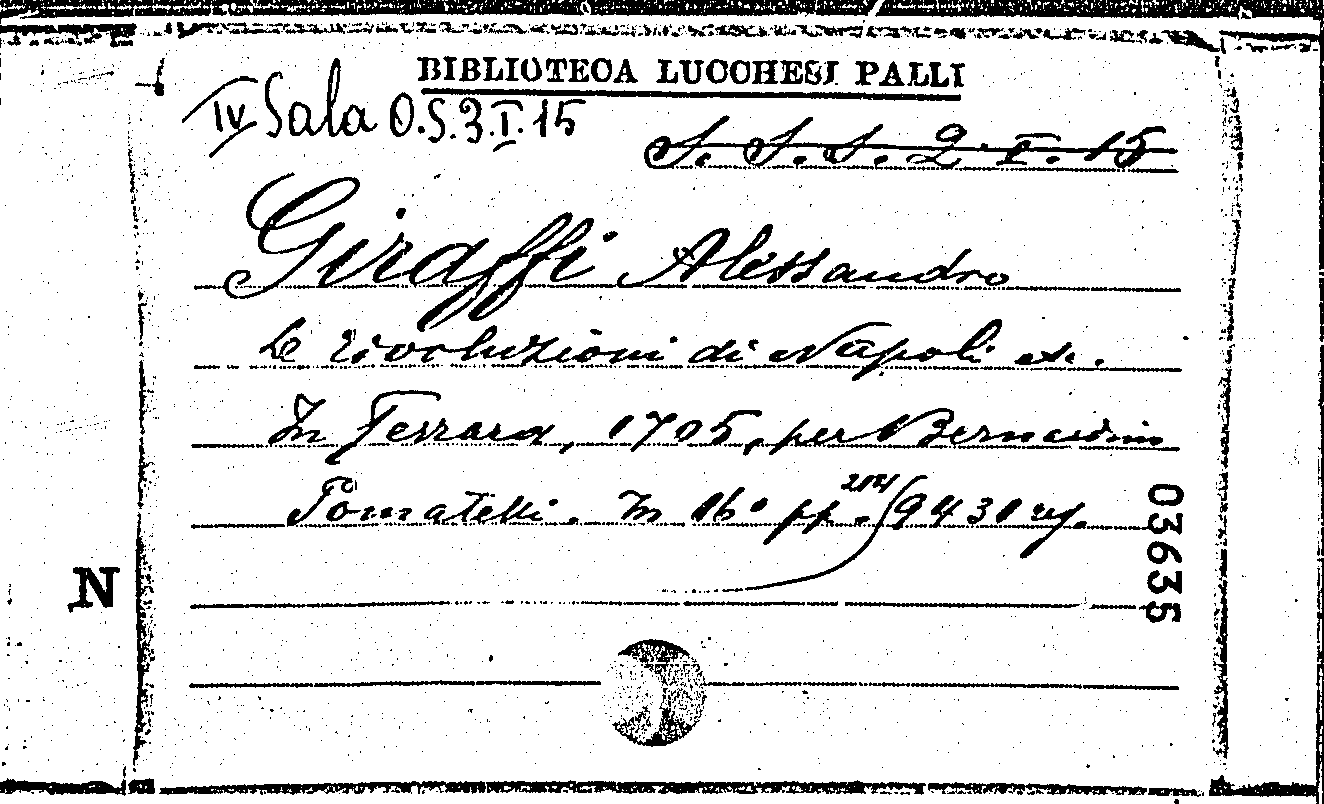 BIBLIOTECA LUCCHESI PALLI
IV Sala O.S.3.I.15
S. S. S. 2. I. 15
Giraffi Alessandro
Le rivoluzioni di Napoli etc.
In Ferrara, 1705, per Bernardin
Pomatelli. In 16° pp.
03635
N